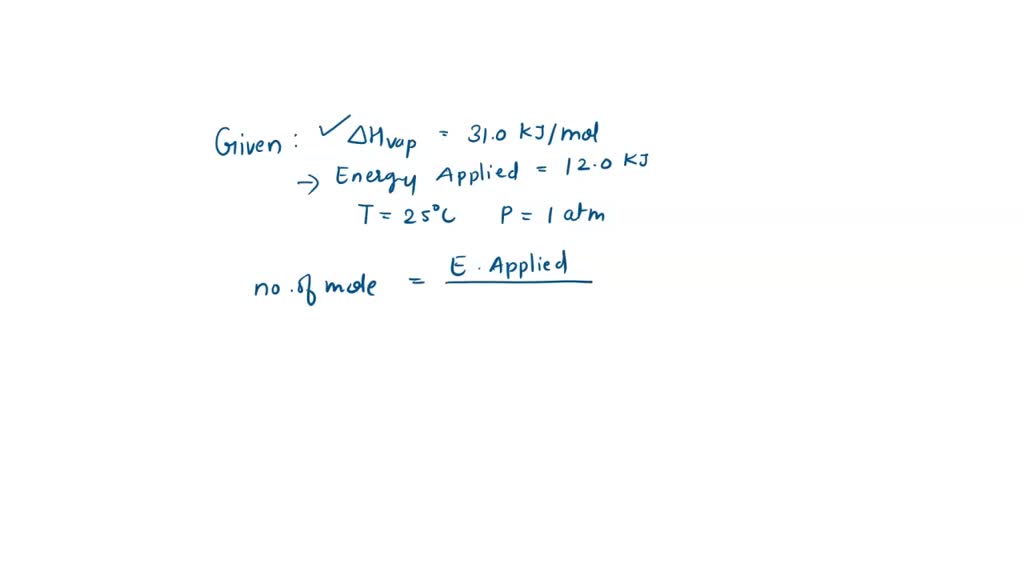 Given : ✓ ΔHvap = 31.0 KJ/mol
→ Energy Applied = 12.0 KJ
T = 25°C P = 1 atm
no. of mole = E. Applied